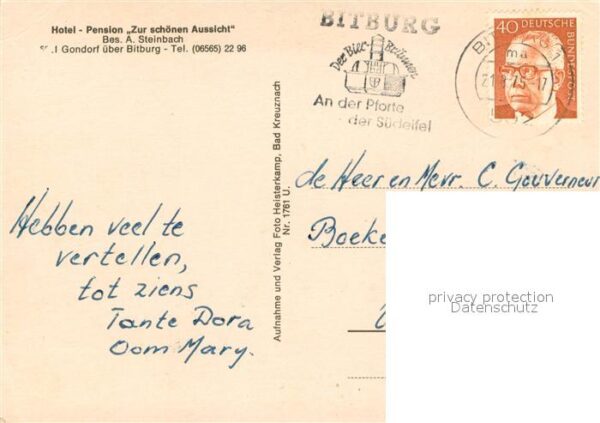 Hotel - Pension „Zur schönen Aussicht"
Bes. A. Steinbach
Gondorf über Bitburg - Tel. (06565) 22 96
BITBURG
Der Bier-Brunnen
An der Pforte
der Südeifel
40 DEUTSCHE BUNDESPOST
Aufnahme und Verlag Foto Heisterkamp, Bad Kreuznach
Nr. 1761 U.
de Heer en Mevr. C. Gouverneur
Boeke
Hebben veel te
vertellen,
tot ziens
Tante Dora
Oom Mary.
privacy protection
Datenschutz